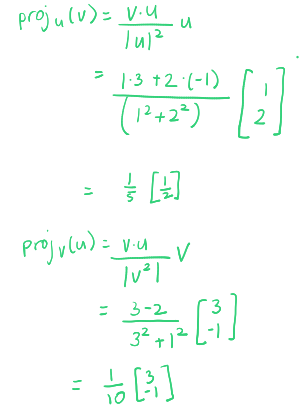 proj_u(v) = \frac{v \cdot u}{|u|^2} u
= \frac{1 \cdot 3 + 2 \cdot (-1)}{(1^2 + 2^2)} \begin{bmatrix} 1 \\ 2 \end{bmatrix}
= \frac{1}{5} \left[ \frac{1}{2} \right]
proj_v(u) = \frac{v \cdot u}{|v^2|} v
= \frac{3 - 2}{3^2 + 1^2} \begin{bmatrix} 3 \\ -1 \end{bmatrix}
= \frac{1}{10} \begin{bmatrix} 3 \\ -1 \end{bmatrix}